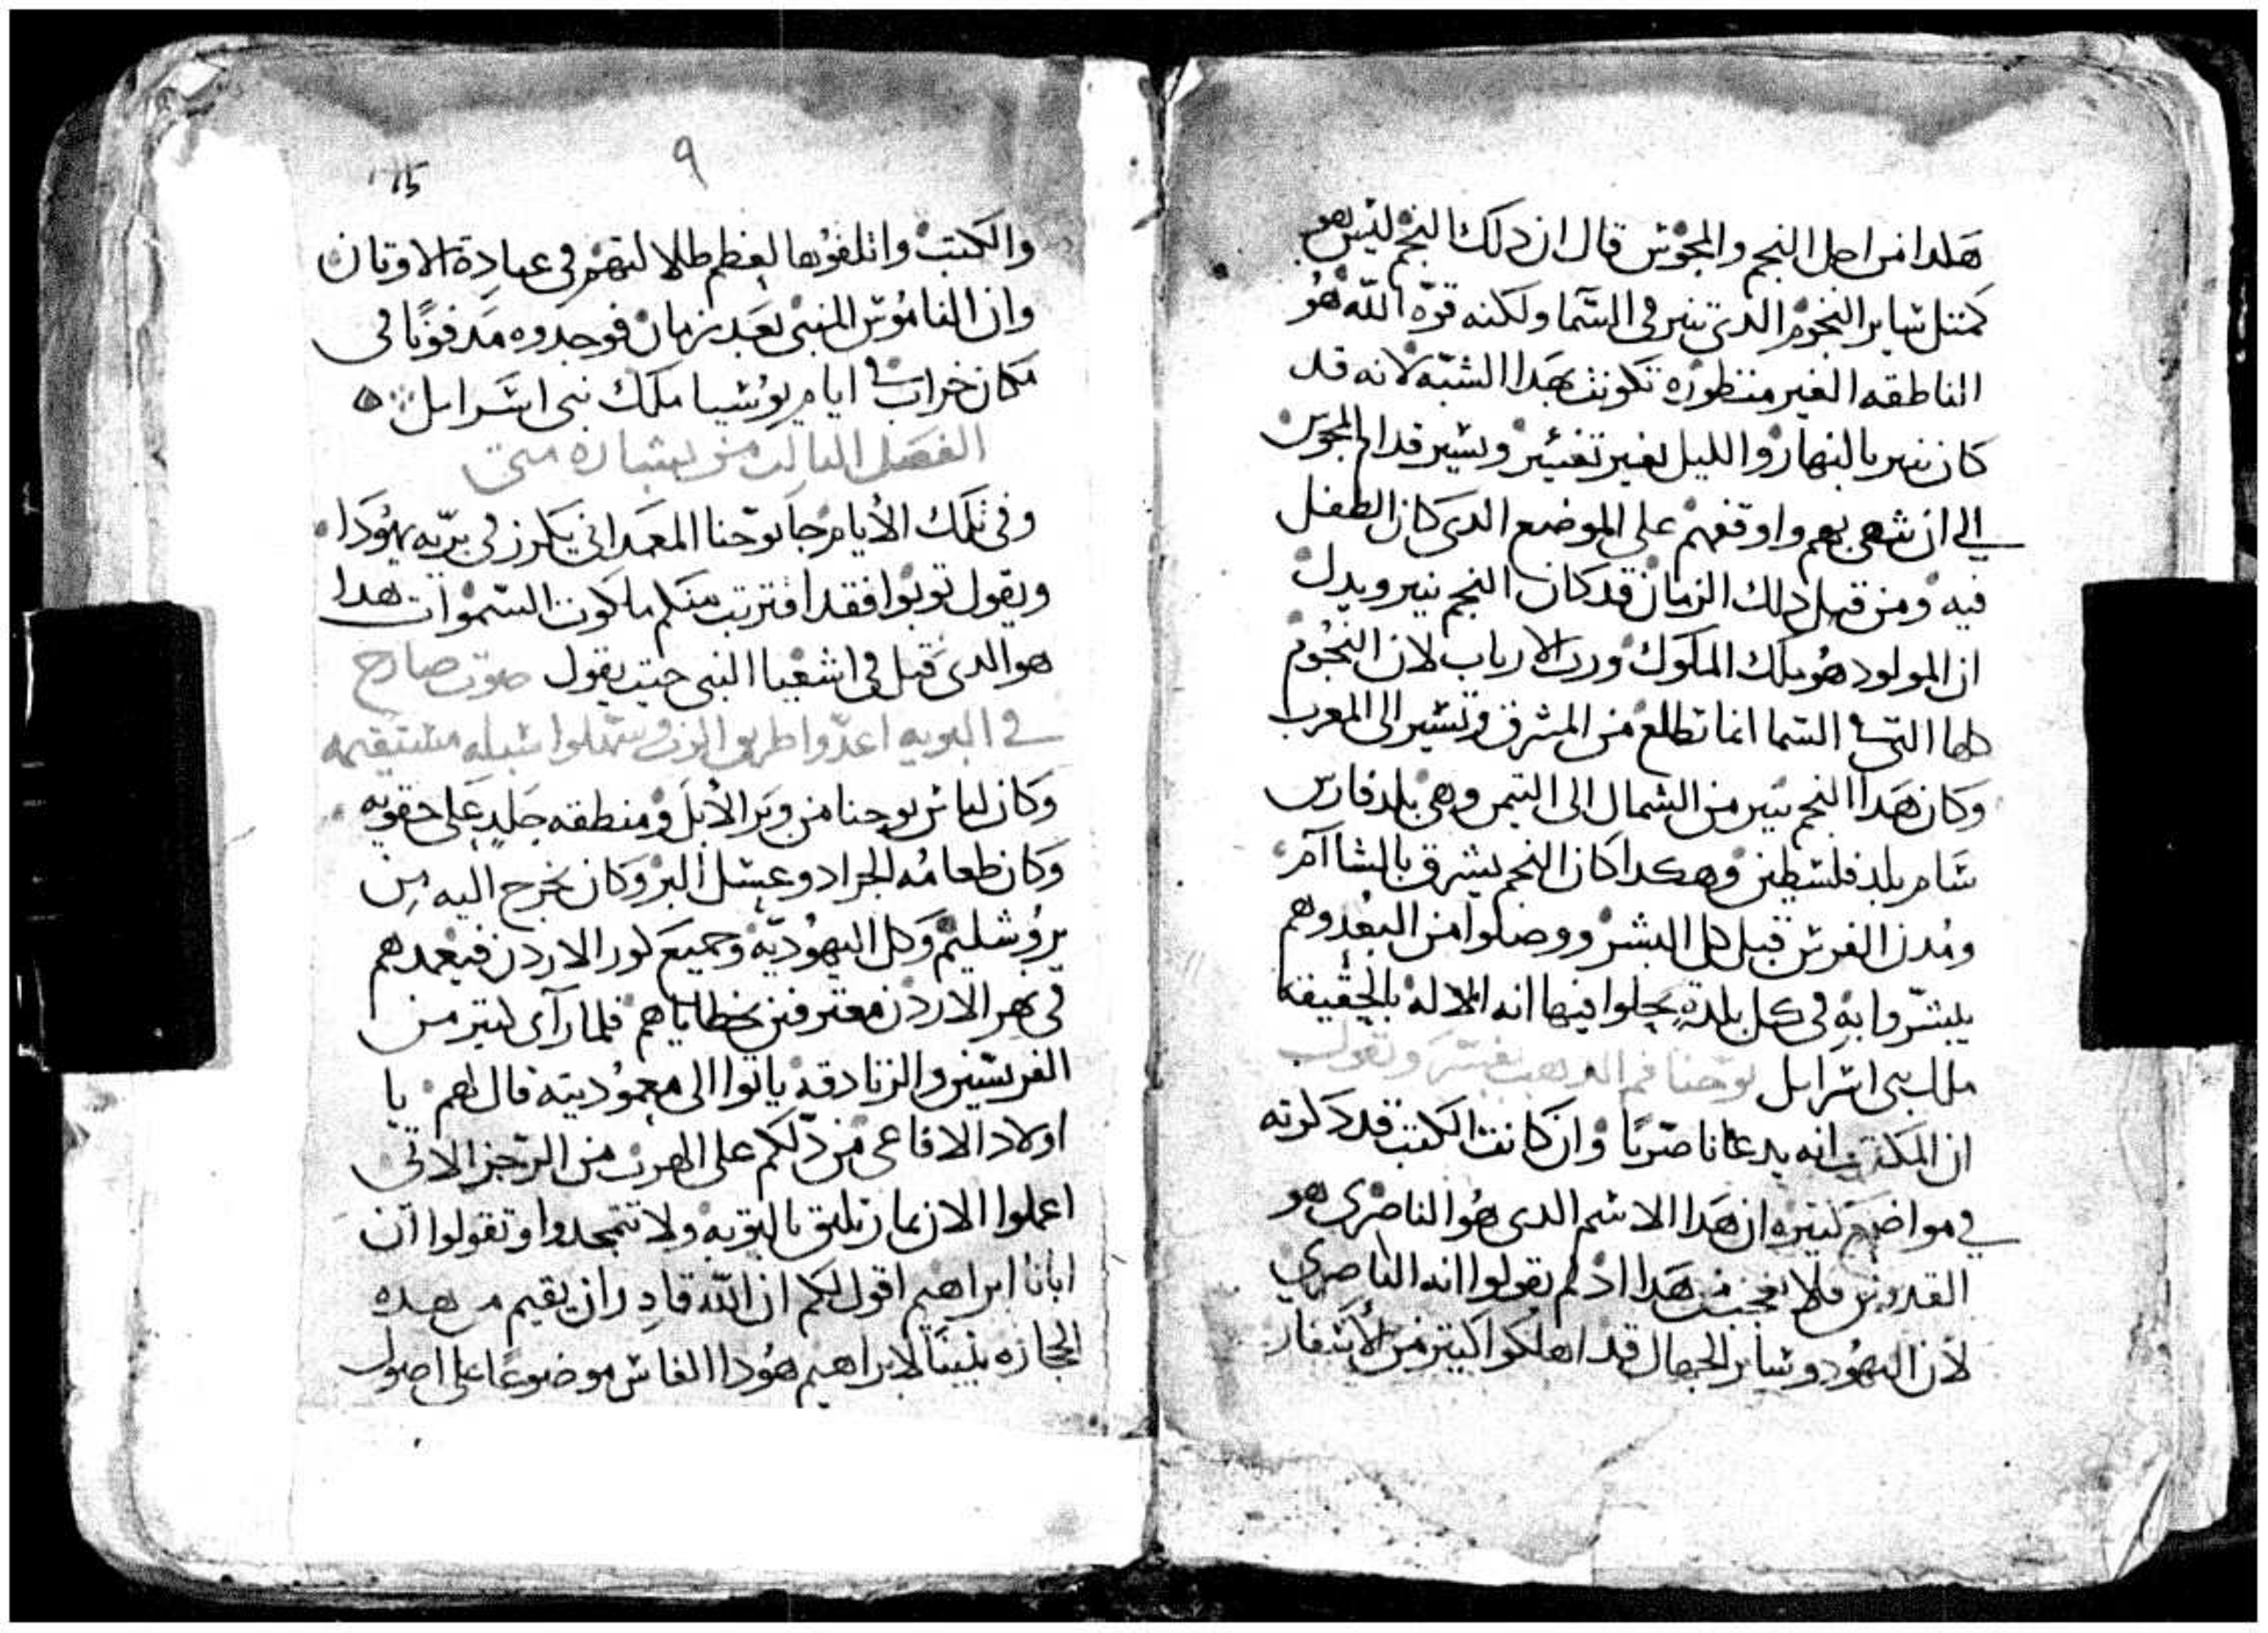 هكدا من اجل النجم والمجوس قال ان دلك النجم ليس هو
كمتل ساير النجوم الدي تنير في السما ولكنه قوه الله هو
الناطقه الغير منظوره تكونت بهدا الشبه لانه قد
كان ينير بالنهار والليل بغير تغيير ويسير قدام المجوس
الي ان سعى بهم واوقفهم على الموضع الدي كان الطفل
فيه ومن قبل دلك الزمان قد كان النجم ينير ويدل
ان المولود هو ملك الملوك ورب الارباب لان النجوم
كلها التي في السما انما تطلع من المشرق وتسير الى المغرب
وكان هدا النجم يسير من الشمال الى التيمن وهي بلد فارس
شام بلد فلسطين وهكدا كان النجم يشرق بالشاام
ومدن الفرس قبل كل البشر ووصلوا من البعد وهم
يبشروا به في كل بلدة يحلوا فيها انه الاله بالحقيقة
ملك بني اسرايل يوحنا فم الدهب يفسر ويقول
ان المكتوب انه يدعا ناصريا وان كانت الكتب قد دكرته
في مواضع كتيره ان هدا الاسم الدي هو الناصري هو
القدوس فلا تعجب من هدا اد لم يقولوا انه الناصري
لان اليهود وساير الجهال قد اهلكوا اكتر من الاسفار
٩
والكتب واتلفوها لعظم ضلالتهم في عبادة الاوتان
وان الناموس المنسي بعد زمان فوجدوه مدفونا في
مكان خراب في ايام يوشيا ملك بني اسرايل
الفصل التالت من بشاره متى
وفي تلك الايام جا يوحنا المعمداني يكرز في بريه يهودا
ويقول توبوا فقد اقتربت منكم ملكوت السموات هدا
هو الدي قيل في اشعيا النبي حيت يقول صوت صارح
في البريه اعدوا طريق الرب وسهلوا سبله مستقيمه
وكان لباس يوحنا من وبر الابل ومنطقه جلد على حقويه
وكان طعامه الجراد وعسل البر وكان يخرج اليه من
يروشليم وكل اليهوديه وجميع كور الاردن فيعمدهم
في نهر الاردن معترفين بخطاياهم فلما رآى كتير من
الفريسين والزنادقه ياتوا الى معموديته قال لهم يا
اولاد الافاعي من دلكم على الهرب من الرجز الاتي
اعملوا الان تمار تليق بالتوبه ولا تتمجدوا وتقولوا ان
ابانا ابراهيم اقول لكم ان الله قادر ان يقيم من هده
الحجاره بنينا لابراهيم هودا الفاس موضوعا على اصول